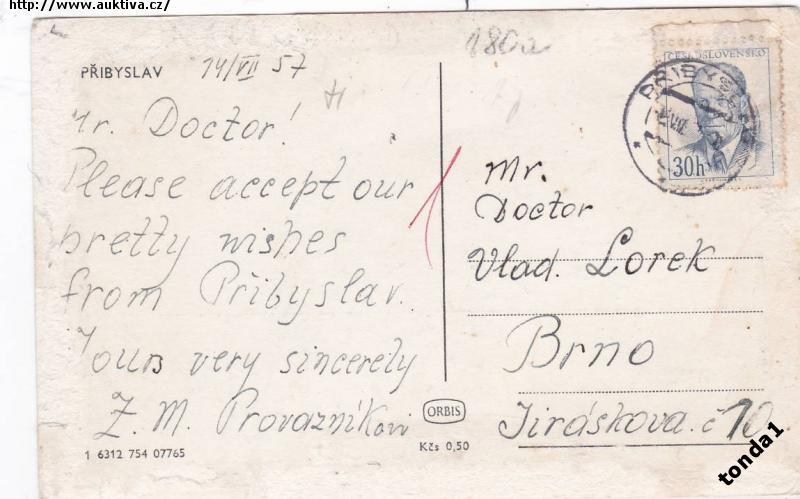 http://www.auktiva.cz/
PŘIBYSLAV
14/VII 57
180a
Mr. Doctor!
Please accept our
pretty wishes
from Přibyslav.
Yours very sincerely
Z. M. Provazníkovi
1 6312 754 07765
ORBIS
Kčs 0,50
ČESKOSLOVENSKO
30h
Mr.
Doctor
Vlad. Lorek
Brno
Jiráskova. č 10
tonda1